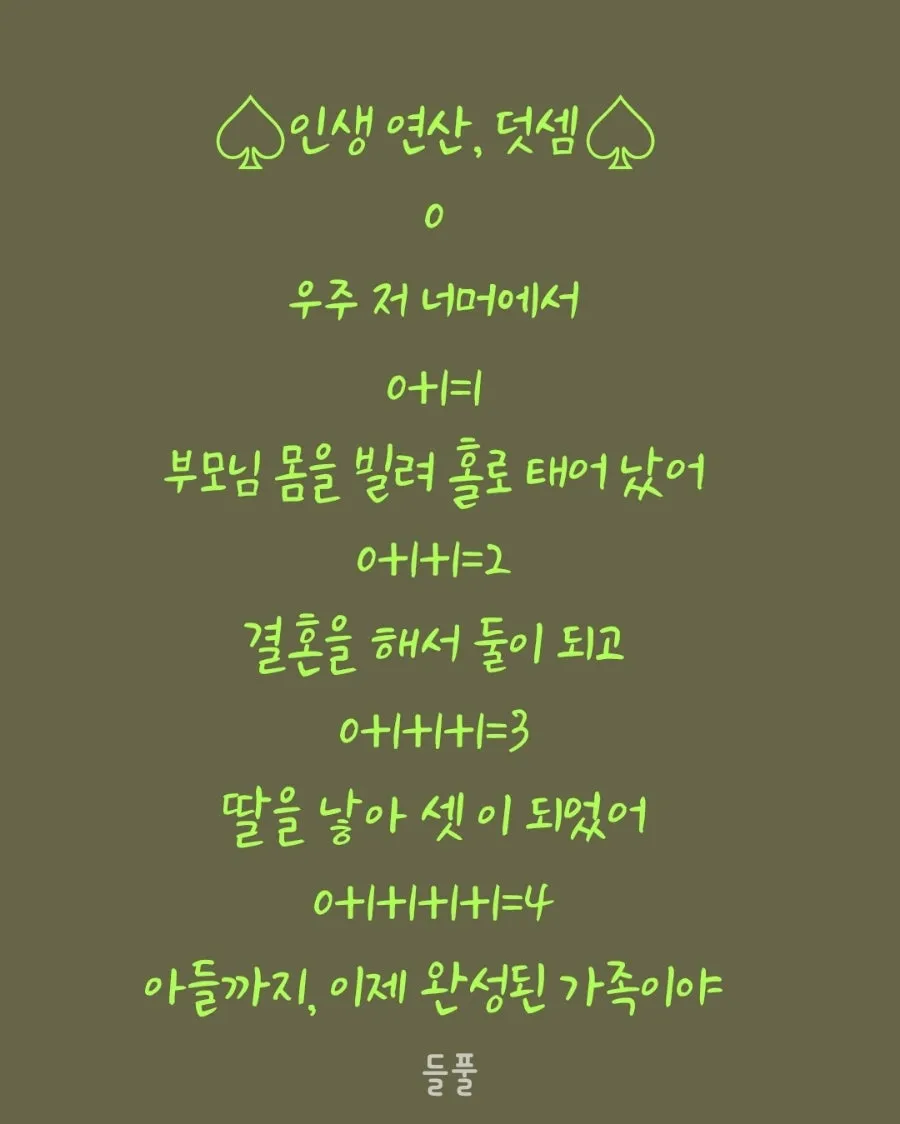 ♤인생 연산, 덧셈♤
0
우주 저 너머에서
0+1=1
부모님 몸을 빌려 홀로 태어 났어
0+1+1=2
결혼을 해서 둘이 되고
0+1+1+1=3
딸을 낳아 셋 이 되었어
0+1+1+1+1=4
아들까지, 이제 완성된 가족이야
들풀